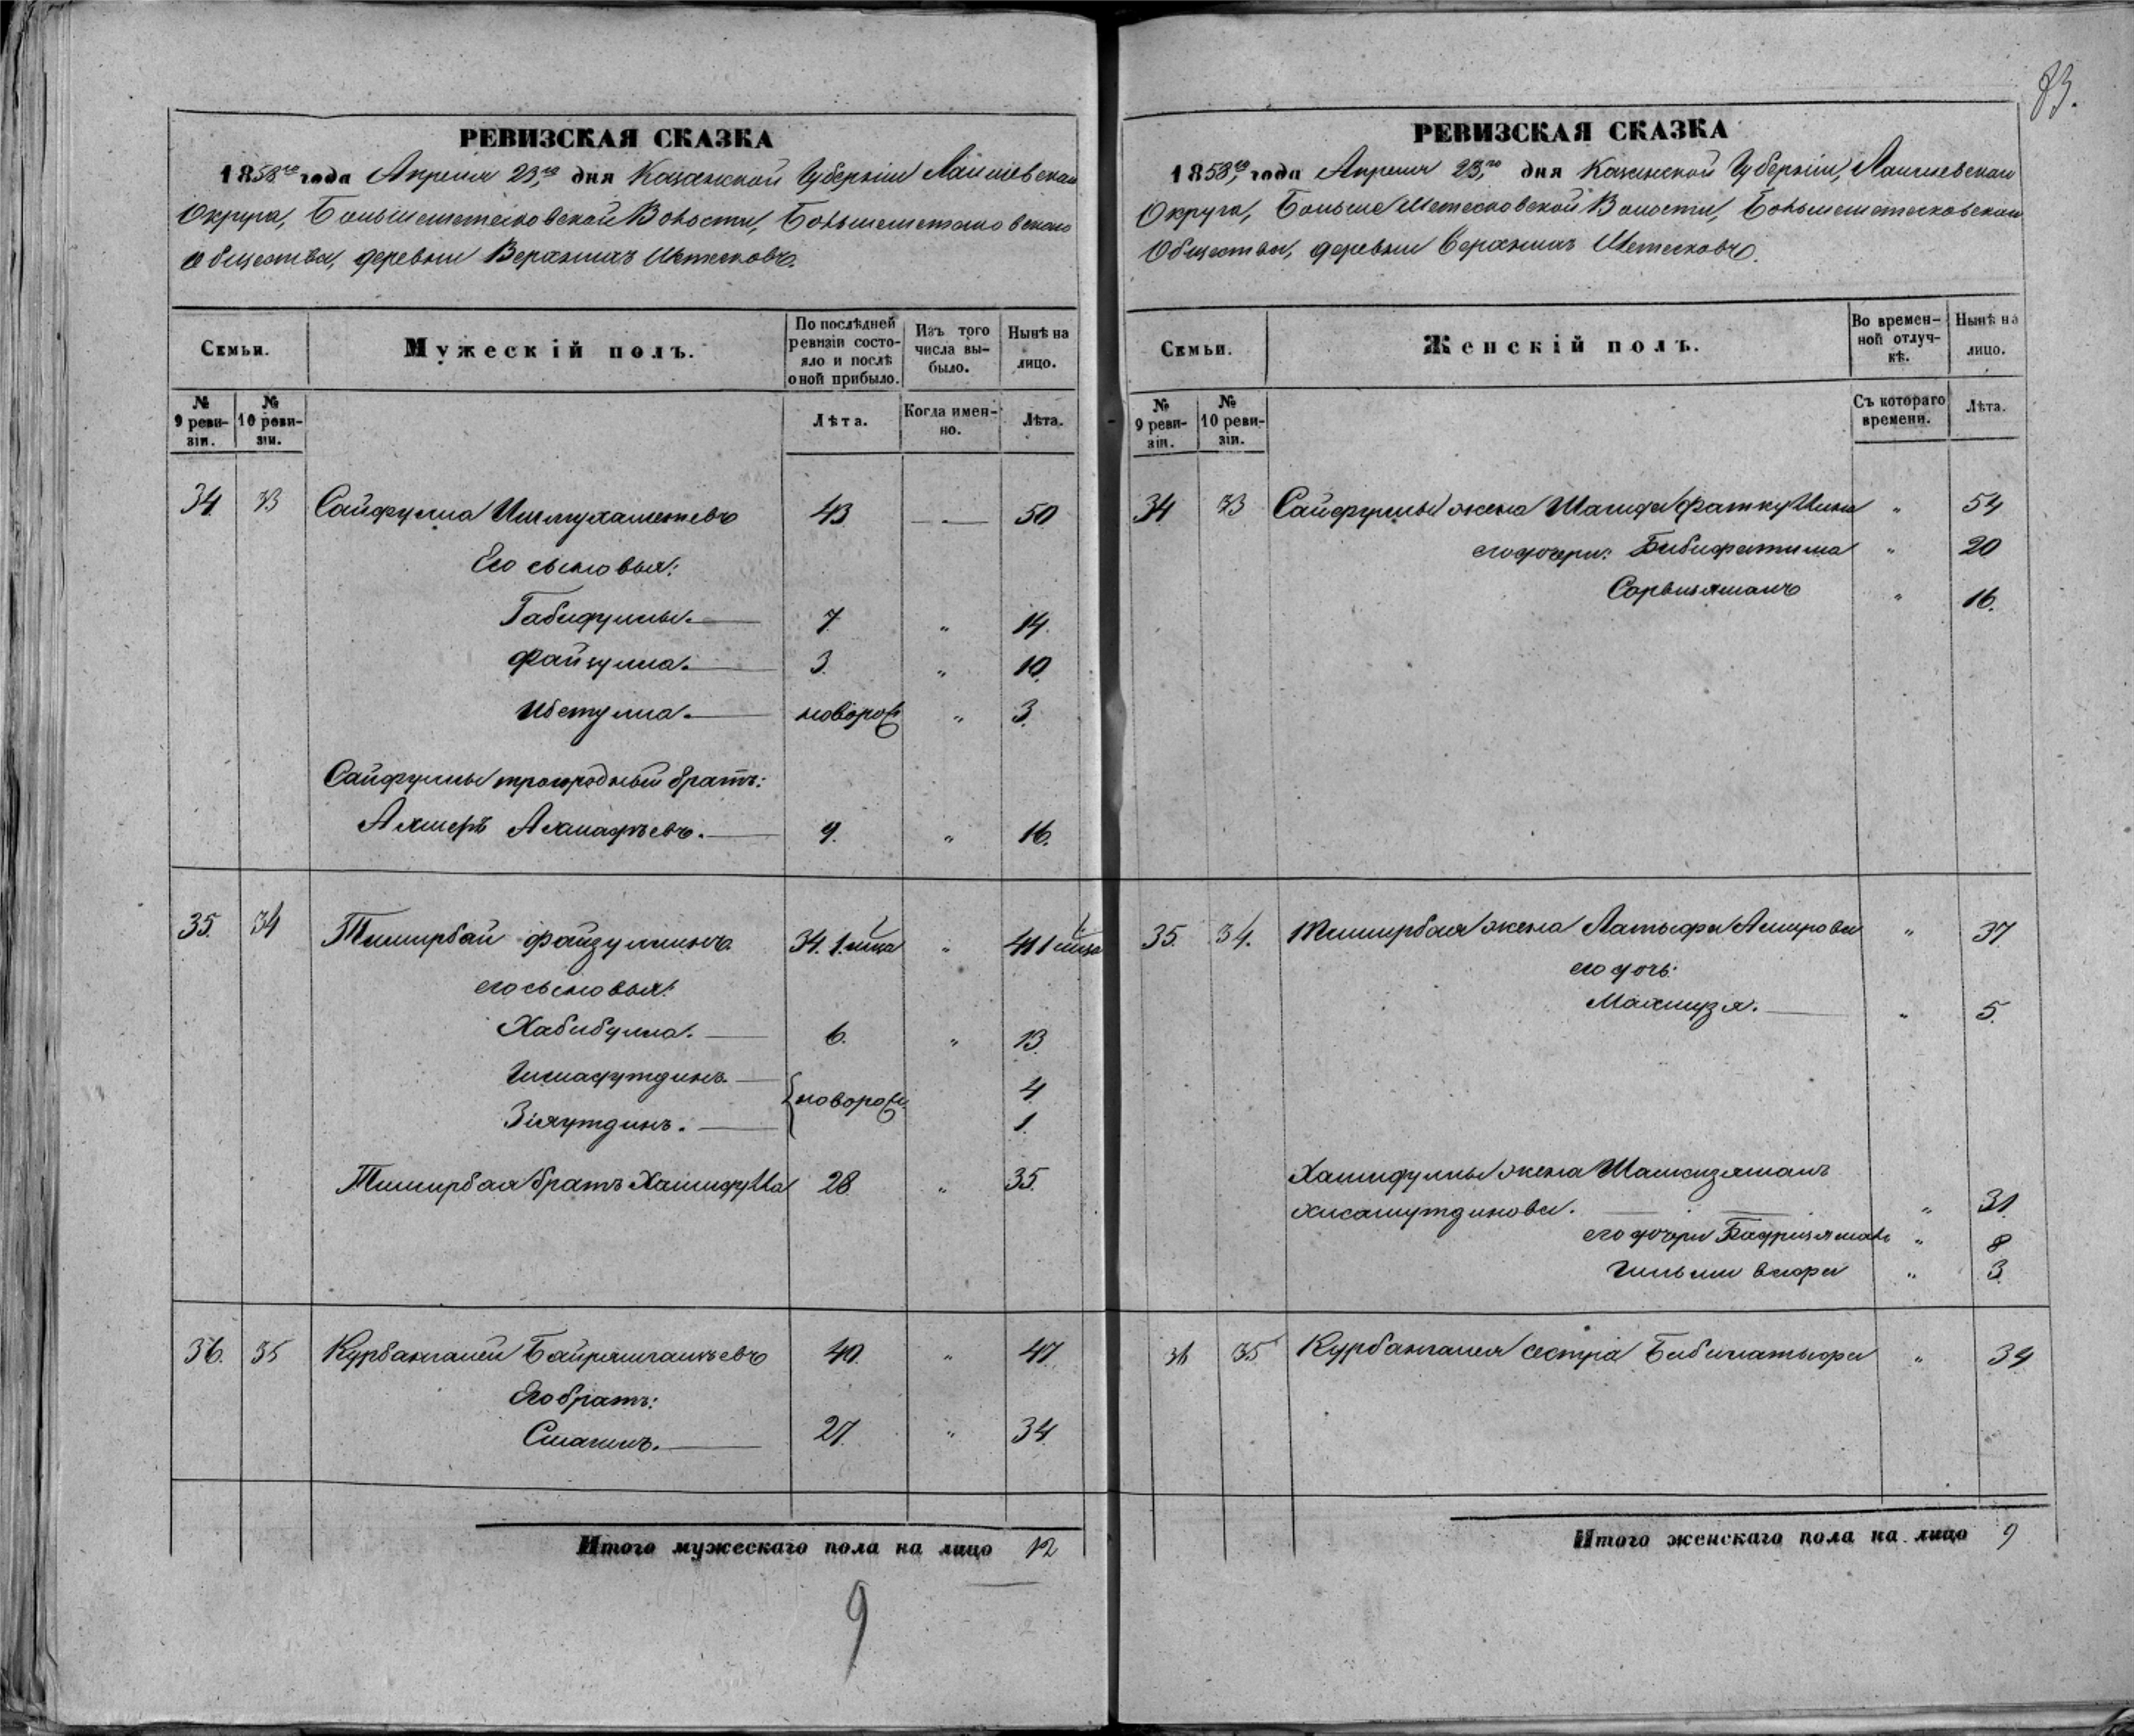 83.
РЕВИЗСКАЯ СКАЗКА
1858го года Апреля 23го дня Казанской Губерніи Лаишевскаго
Округа, Большеметесковской Волости, Большеметесковскаго
Общества, деревни Верхнихъ Метесковъ.
Семьи.
Мужескій полъ.
По послѣдней ревизіи состояло и послѣ оной прибыло.
Изъ того числа выбыло.
Нынѣ на лицо.
№ 9 ревизіи.
№ 10 ревизіи.
Лѣта.
Когда именно.
Лѣта.
34 33 Сайфулла Ишмухаметевъ 43 — „ — 50
Его сыновья:
Габидуллы. 7. „ 14.
Файзулла. 3. „ 10.
новорож „ 3.
Сайфуллы троюродный братъ:
9. „ 16.
35. 34 Тимирбай Файзуллинъ 34. 1. мца „ 41 1 мца
его сыновья:
Хабибулла. 6. „ 13.
новорож. 4
Зіяутдинъ. 1.
Тимирбая братъ Хамидулла 28 „ 35.
36. 35 Курбангалей Байрямгалѣевъ 40. „ 47
Его братъ:
Смагилъ. 27. „ 34.
Итого мужескаго пола на лицо 12
9
РЕВИЗСКАЯ СКАЗКА
1858го года Апреля 23го дня Казанской Губерніи, Лаишевскаго
Округа, Большеметесковской Волости, Большеметесковскаго
Общества, деревни Верхнихъ Метесковъ.
Семьи.
Женскій полъ.
Во временной отлучкѣ.
Нынѣ на лицо.
№ 9 ревизіи.
№ 10 ревизіи.
Съ котораго времени.
Лѣта.
34 33 Сайфуллы жена Шагида Фаткуллина „ 54
его дочери: Бибифатима „ 20
„ 16.
35. 34. Тимирбая жена Латыфа Амирова „ 37
его дочь:
Махмузя. „ 5.
Хамидуллы жена Шамсизямалъ
Хисамутдинова. „ 31.
его дочери Бадризямалъ „ 8
„ 3.
36 35 Курбангалея сестра Бибилатыфа „ 34
Итого женскаго пола на лицо 9